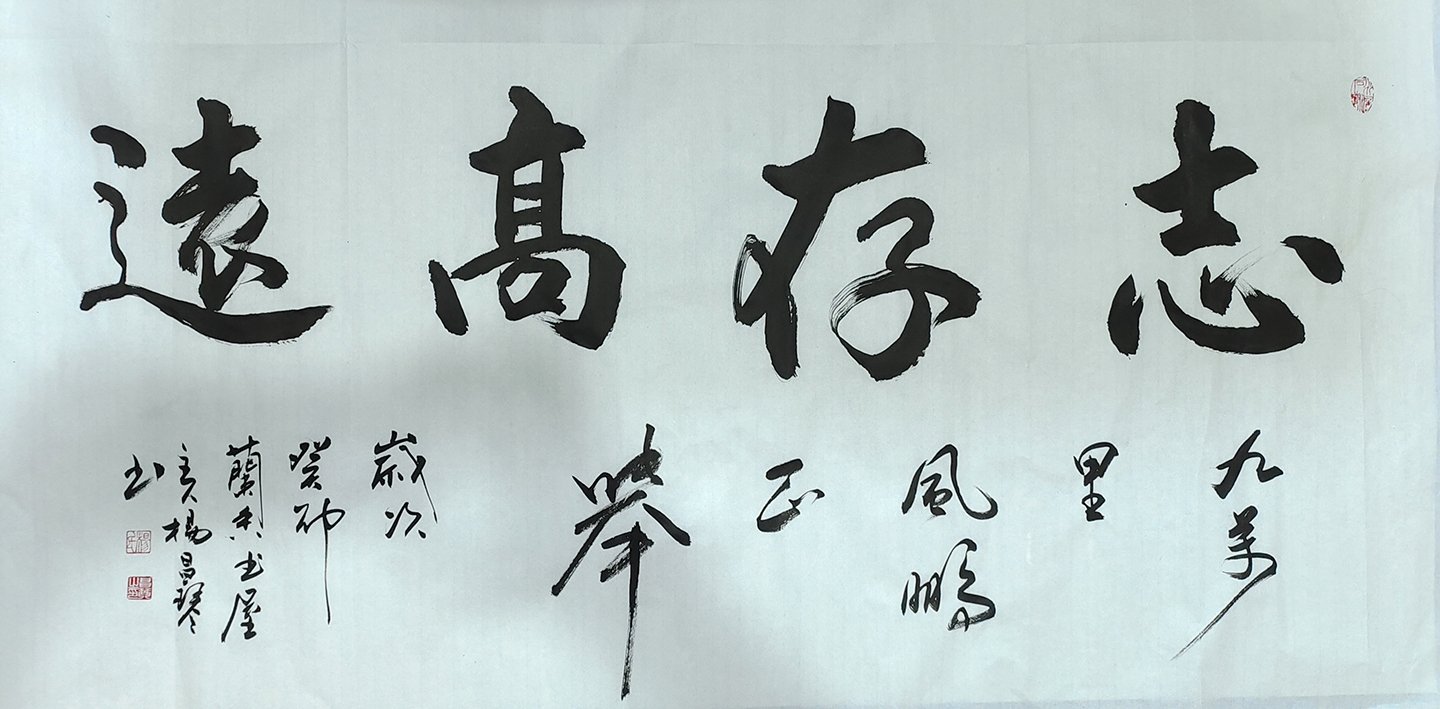 志存高遠
九萬
里
風鵬
正
舉
歲次
癸卯
蘭香書屋
主人楊昌琴
書